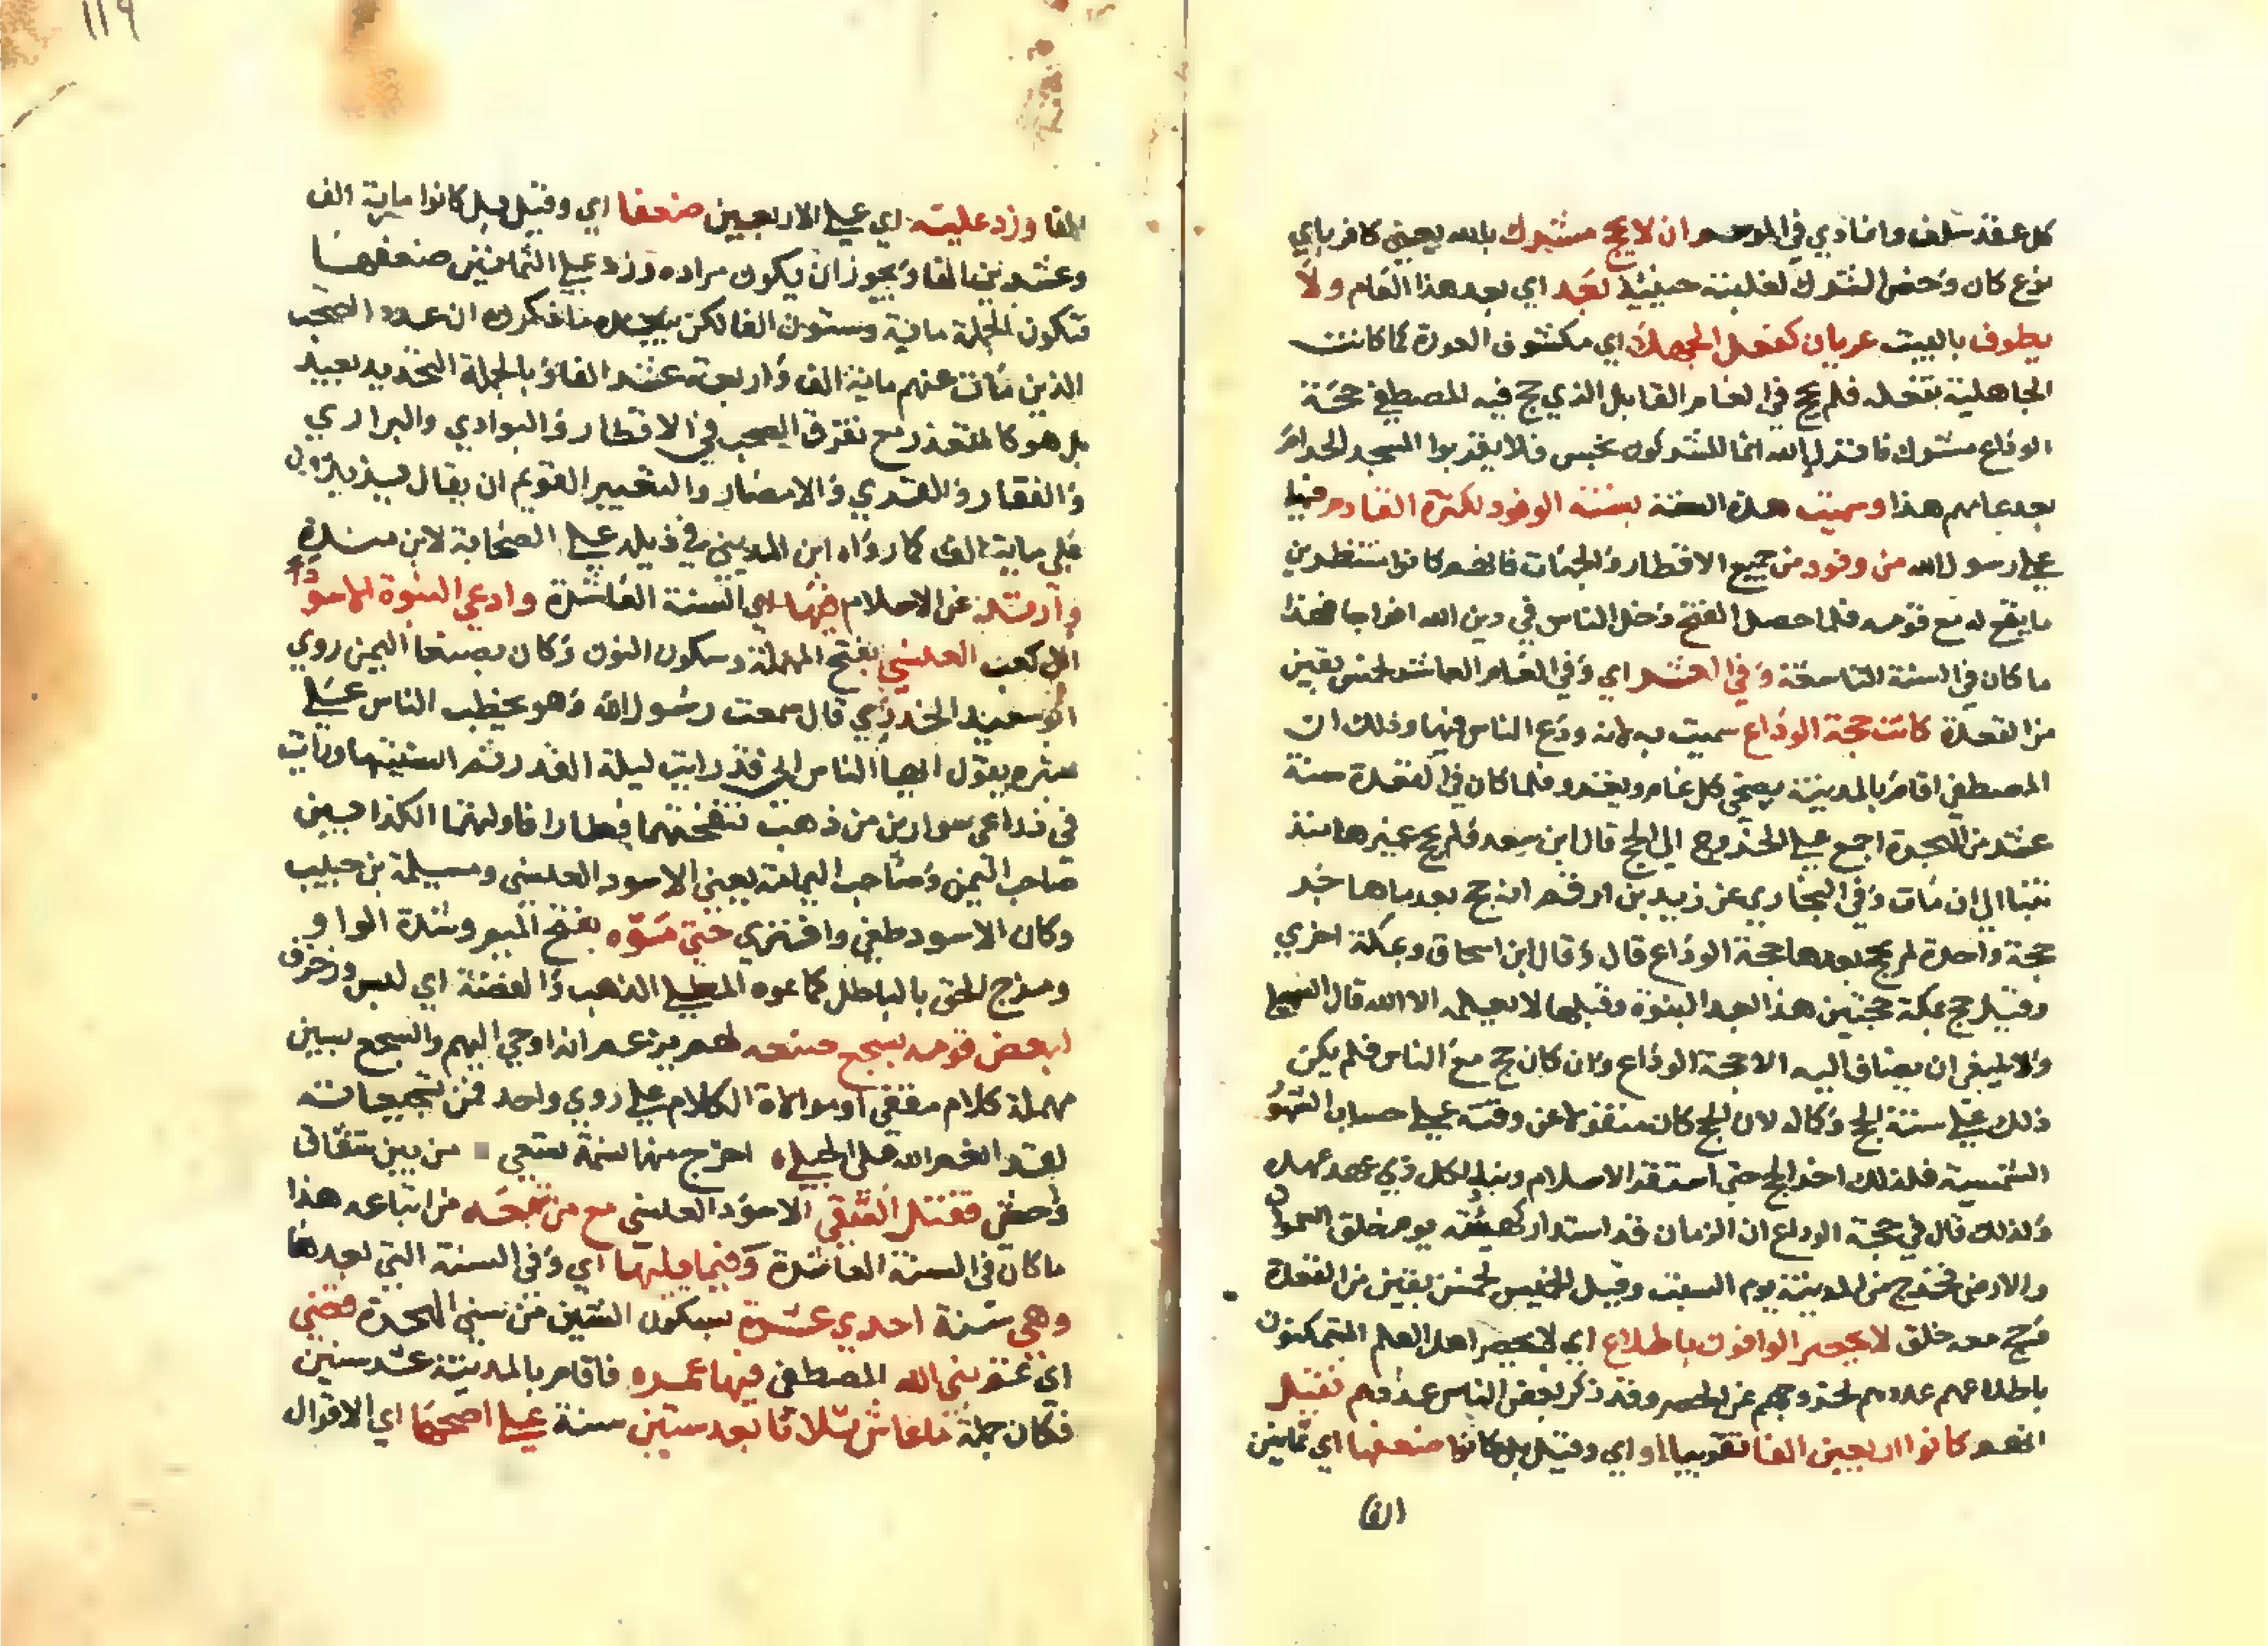 كل عقد سلف وانادي في الموسم ان لا يحج مشرك بالله يعني كافر باي
نوع كان وخص الشرك لغلبته حينئذ بعد اي بعد هذا العام ولا
يطوف بالبيت عريان كفعل الجهلك اي مكشوف العورة كما كانت
الجاهلية تفعله فلم يحج في العام القابل الذي حج فيه المصطفي حجة
الوداع مشرك فانزل الله انما المشركون نجس فلا يقربوا المسجد الحرام
بعد عامهم هذا وسميت هذة السنة بسنة الوفود لكثرة القادم فيها
علي رسول الله من وفود من جميع الاقطار والجهات فانهم كانوا منتظرين
ما يقع له مع قومه فلما حصل الفتح دخل الناس في دين الله افواجا فهذا
ما كان في السنة التاسعة وفي العشر اي وفي العام العاشر لخمس بقين
من القعدة كانت حجة الوداع سميت به لانه ودع الناس فيها وذلك ان
المصطفي اقام بالمدينة يضحي كل عام ويغزو فلما كان في القعدة سنة
عشر من الهجرة اجمع علي الخروج الي الحج قال ابن سعد فلم يحج غيرها منذ
تنبا الي ان مات وفي البخاري عن زيد بن ارقم انه حج بعد ما هاجر
حجة واحدة لم يحج بعدها حجة الوداع قال وقال ابن اسحاق وبمكة اخري
وقيل حج بمكة حجتين هذا بعد النبوة وقبلها لا يعلمه الا الله قال السهيلي
ولا ينبغي ان يضاف اليه الا حجة الوداع وان كان حج مع الناس فلم يكن
ذلك علي سنة الحج وكاله لان الحج كان منقولا عن وقته علي حساب الشهو
الشمسية فلذلك اخر الحج حتي استقر الاسلام ونبذ لكل ذي عهد عهده
ولذلك قال في حجة الوداع ان الزمان قد استدار كهيئته يوم خلق السموات
والارض فخرج من المدينة يوم السبت وقيل الخميس لخمس بقين من القعدة
فحج معه خلق لا يحصر الوافون باطلاع اي لا يحصر اهل العلم المتمكنون
باطلاعهم عددهم لخروجهم عن الحصر وقد ذكر بعض الناس عددهم فقيل
انهم كانوا اربعين الفا تقريبا او اي وقيل بل كانوا ضعفها اي ثمانين
الفا
١١٩
الفا وزد عليه اي علي الاربعين ضعفا اي وقيل بل كانوا ماية الف
وعشرين الفا ويجوز ان يكون مراده وزد علي الثمانين ضعفها
فتكون الجملة ماية وستون الفا لكن يبعده ما ذكره ان عدد الصحب
الذين مات عنهم ماية الف واربعة عشر الفا وبالجملة التحديد بعيد
بل هو كالمتعذر مع تفرق الصحب في الاقطار والبوادي والبراري
والقفار والقري والامصار والتعبير القويم ان يقال يزيدون
علي ماية الف كما رواه ابن المديني في ذيله علي الصحابة لابن مندة
وارتد عن الاسلام فيها اي السنة العاشرة وادعي النبوة الاسود
ابن كعب العنسي بفتح المهملة وسكون النون وكان بصنعا اليمن روي
ابو سعيد الخدري قال سمعت رسول الله وهو يخطب الناس علي
منبره يقول ايها الناس اني قد رايت ليلة القدر ثم انسيتها ورايت
في ذراعي سوارين من ذهب فنفختهما فطارا فاولتهما الكذابين
صاحب اليمن وصاحب اليمامة يعني الاسود العنسي ومسيلمة بن حبيب
وكان الاسود طغي وافتري حتي موّه بفتح الميم وشدة الواو
ومزج الحق بالباطل كما يموه المطلي الذهب والفضة اي لبس وزخرف
لبعض قومه بسجع صنعه لهم يزعم انه اوحي اليهم والسجع بسين
مهملة كلام مقفي او موالاة الكلام علي روي واحد فمن تسجيعاته
لقد انعم الله علي الحبلي اخرج منها نسمة تسعي من بين شغاف
وحشي فقتل الشقي الاسود العنسي مع من تبعه من اتباعه هذا
ما كان في السنة العاشرة وفيما يليها اي وفي السنة التي بعدها
وهي سنة احدي عشرة بسكون الشين من سني الهجرة قضي
اي عن نبي الله المصطفي فيها عمره فاقام بالمدينة عشر سنين
فكان جملة ما عاش ثلاثا بعد ستين سنة علي اصحها اي الاقوال